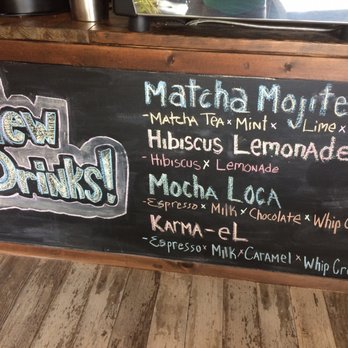 ew
Drinks!
Matcha Mojito
- Matcha Tea x Mint x Lime x
Hibiscus Lemonade
- Hibiscus x Lemonade
Mocha Loca
- Espresso x Milk x Chocolate x Whip C
Karma-eL
- Espresso x Milk x Caramel x Whip Cr